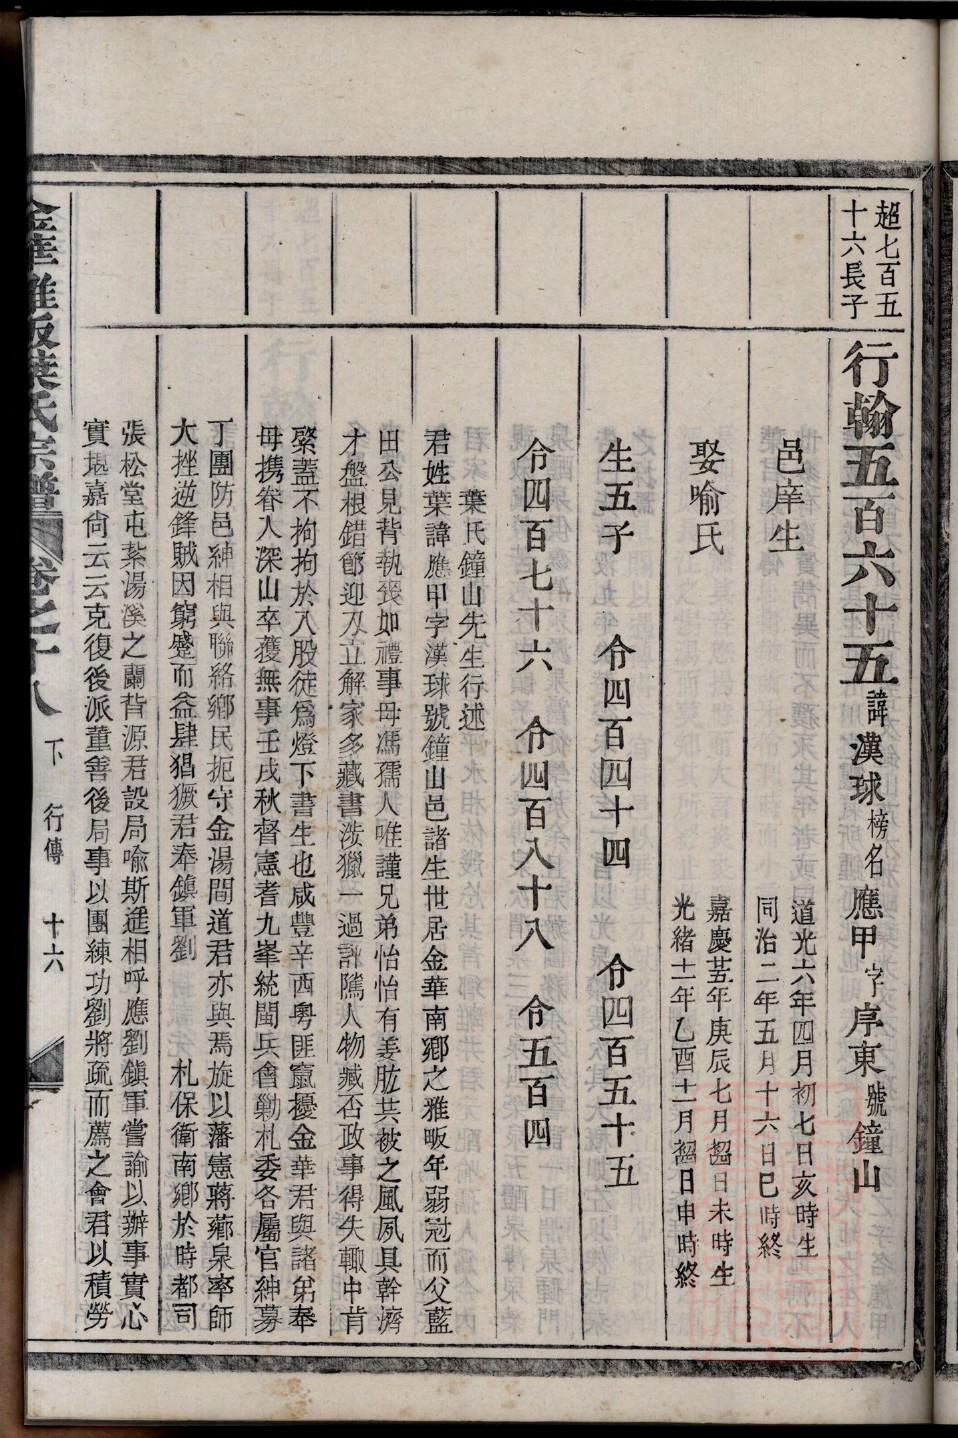 超七百五
十六長子
行翰五百六十五諱漢球榜名應甲字序東號鐘山
邑庠生
道光六年四月初七日亥時生
同治二年五月十六日巳時終
娶喻氏
嘉慶廿五年庚辰七月初日未時生
光緒十一年乙酉十一月初日申時終
生五子 令四百四十四 令四百五十五
令四百七十六 令四百八十八 令五百四
葉氏鐘山先生行述
君姓葉諱應甲字漢球號鐘山邑諸生世居金華南鄉之雅畈年弱冠而父藍
田公見背執喪如禮事母馮孺人唯謹兄弟怡怡有姜肱共被之風夙具幹濟
才盤根錯節迎刃立解家多藏書涉獵一過訛隲人物臧否政事得失輙中肯
綮蓋不拘拘於八股徒爲燈下書生也咸豐辛酉粵匪竄擾金華君與諸弟奉
母攜眷入深山卒獲無事壬戌秋督憲耆九峯統閩兵會勦札委各屬官紳募
丁團防邑紳相與聯絡鄉民扼守金湯間道君亦與焉旋以藩憲蔣薌泉率師
大挫逆鋒賊因窮蹙而益肆猖獗君奉鎮軍劉 札保衛南鄉於時都司
張松堂屯紮湯溪之蘭背源君設局喻斯進相呼應劉鎮軍嘗諭以辦事實心
實堪嘉尙云云克復後派董善後局事以團練功劉將疏而薦之會君以積勞
金華雅畈葉氏宗譜 卷之十八 下 行傳 十六